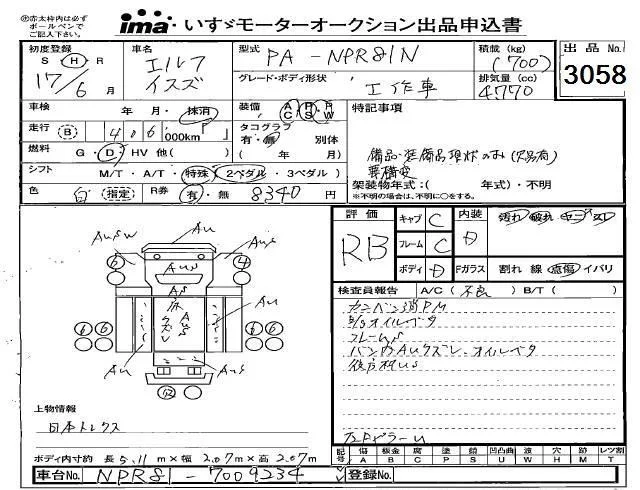 ㊟赤太枠内は必ず
ボールペンで
ご記入下さい。
ima いすゞモーターオークション出品申込書
初度登録 S H R 17/6 月
車名 エルフ イスズ
型式 PA-NPR81N
グレード・ボディ形状 工作車
積載 (kg) (700)
排気量 (cc) 4770
出品 No. 3058
車検 年 月・抹消
装備 AC PS PW
特記事項
走行 B 406,000km「 」
タコグラフ 有・無 別体 ( 年 月)
備品・装備品現状のみ(欠品有)
燃料 G・D・HV 他( )
シフト M/T・A/T・特殊(2ペダル・3ペダル)
架装物年式:( 年式)・不明
※不明の場合は、不明に○をする。
色 白 (指定) R券 有・無 8340 円
評価 RB
キャブ C 内装 D 汚れ 破れ
フレーム C
ボディ D Fガラス 割れ 線 点傷 イバリ
検査員報告 A/C(不良) B/T( )
オイルベタ
フレームS
バン内AUクズレ、オイルベタ
AuSW Au AuS
6 AuS 4
AuS
Au
6 6 6 6
Au AuS
12
上物情報
日本トレクス
ボディ内寸約 長 5.11 m×幅 2.07m×高 2.07m
記号 傷 A 板金 B 腐 C 塗 P 錆 S 凹凸曲 U 波 W 穴 H 跡 M レツ割 T
車台No. NPR81-7009234 登録No.